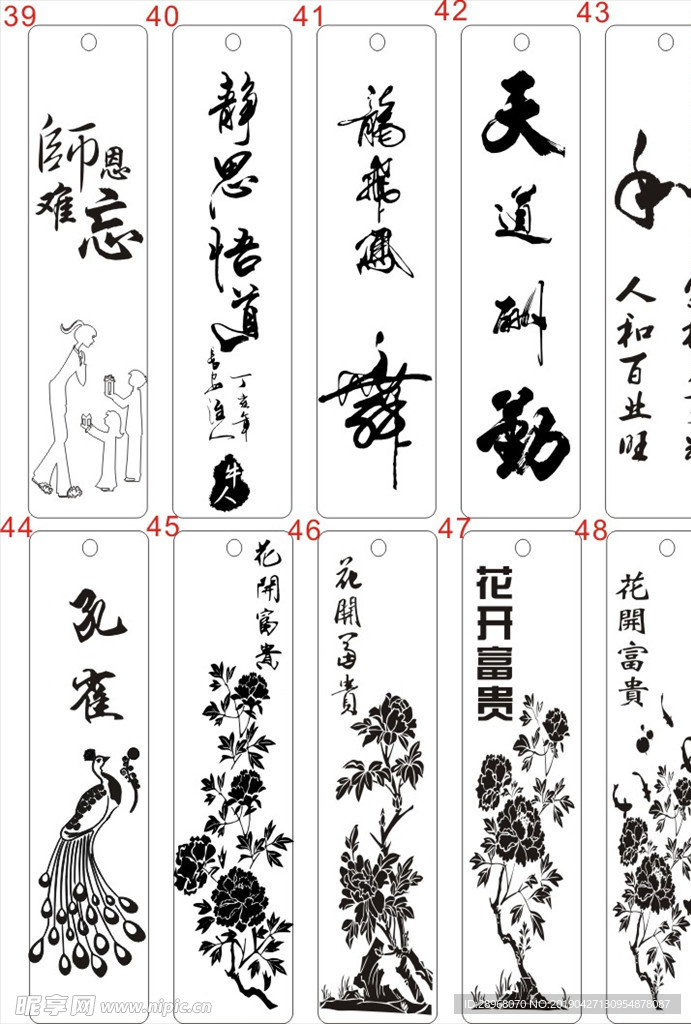 39
師恩
难忘
40
静思悟道
丁亥年
牛人
41
龍飛鳳舞
42
天道酬勤
43
和
人和百业旺
44
孔雀
45
花開富貴
46
花開富貴
47
花开富贵
48
花開富貴
昵享网 www.nipic.cn
ID:28968070 NO:20190427130954878087